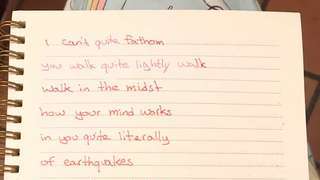 I can't quite fathom
you walk quite lightly walk
walk in the midst
how your mind works
in you quite literally
of earthquakes